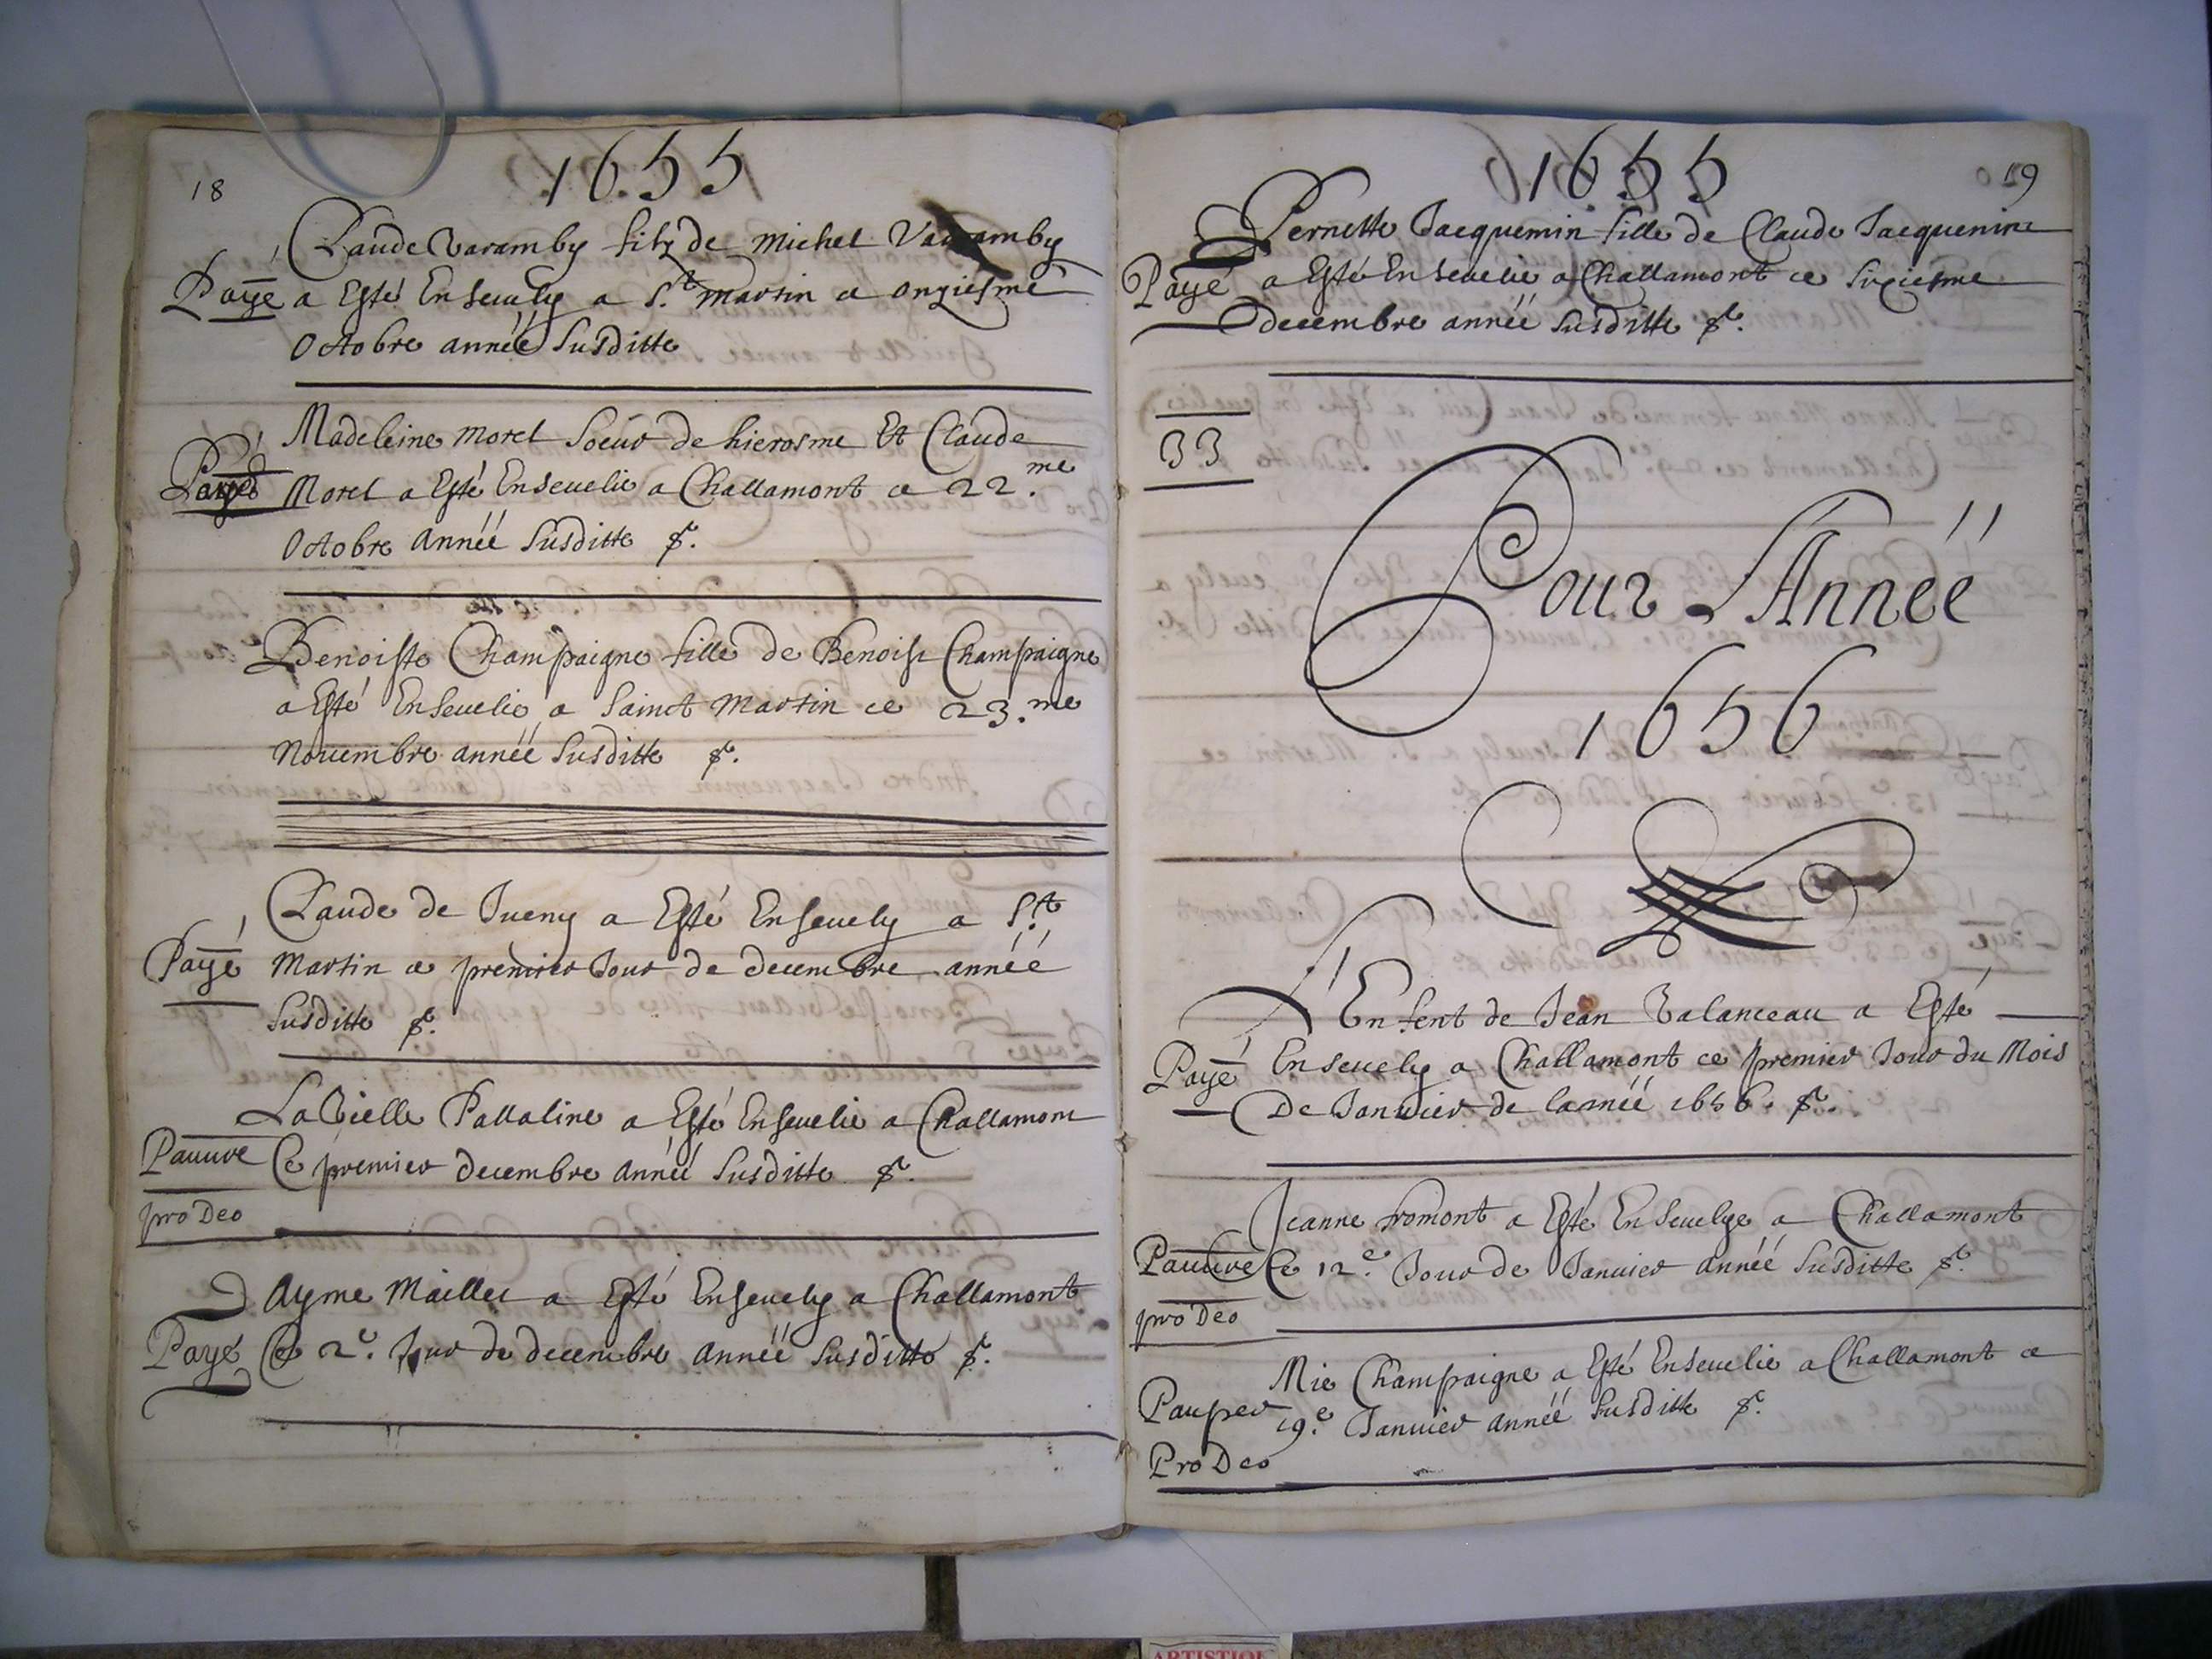 18
1655
Claude Varamby filz de michel Varamby
Payé a Esté Ensevely a S.t martin ce onziesme
Octobre année Susditte
Madeleine morel Soeur de hierosme Et Claude
Payé Morel a Esté Ensevelie a Challamont ce 22.me
Octobre année Susditte &.
Benoiste Champaigne fille de Benoist Champaigne
a Esté Ensevelie a Sainct Martin ce 23.me
Novembre année Susditte &.
Claude de Jueny a Esté Ensevely a S.t
Payé Martin ce premier Jour de decembre année
Susditte &.
La Vielle Pallatine a Esté Ensevelie a Challamont
Pauure Ce premier decembre année Susditte &.
pro Deo
Ayme Maillet a Esté Ensevely a Challamont
Payé Ce 2.e Jour de decembre année Susditte &.
1655
19
Pernette Jacquemin fille de Claude Jacquemin
Payé a Esté Ensevelie a Challamont ce Sixiesme
decembre année Susditte &.
33
Pour L'Année
1656
L'Enfent de Jean Valanceau a Esté
Payé Ensevely a Challamont ce premier Jour du Mois
De Janvier de lannéé 1656. &.
Jeanne fromont a Esté Ensevelye a Challamont
Pauure Ce 12.e Jour de Janvier année Susditte &.
pro Deo
Mie Champaigne a Esté Ensevelie a Challamont ce
Pauper 19.e Janvier année Susditte &.
Pro Deo